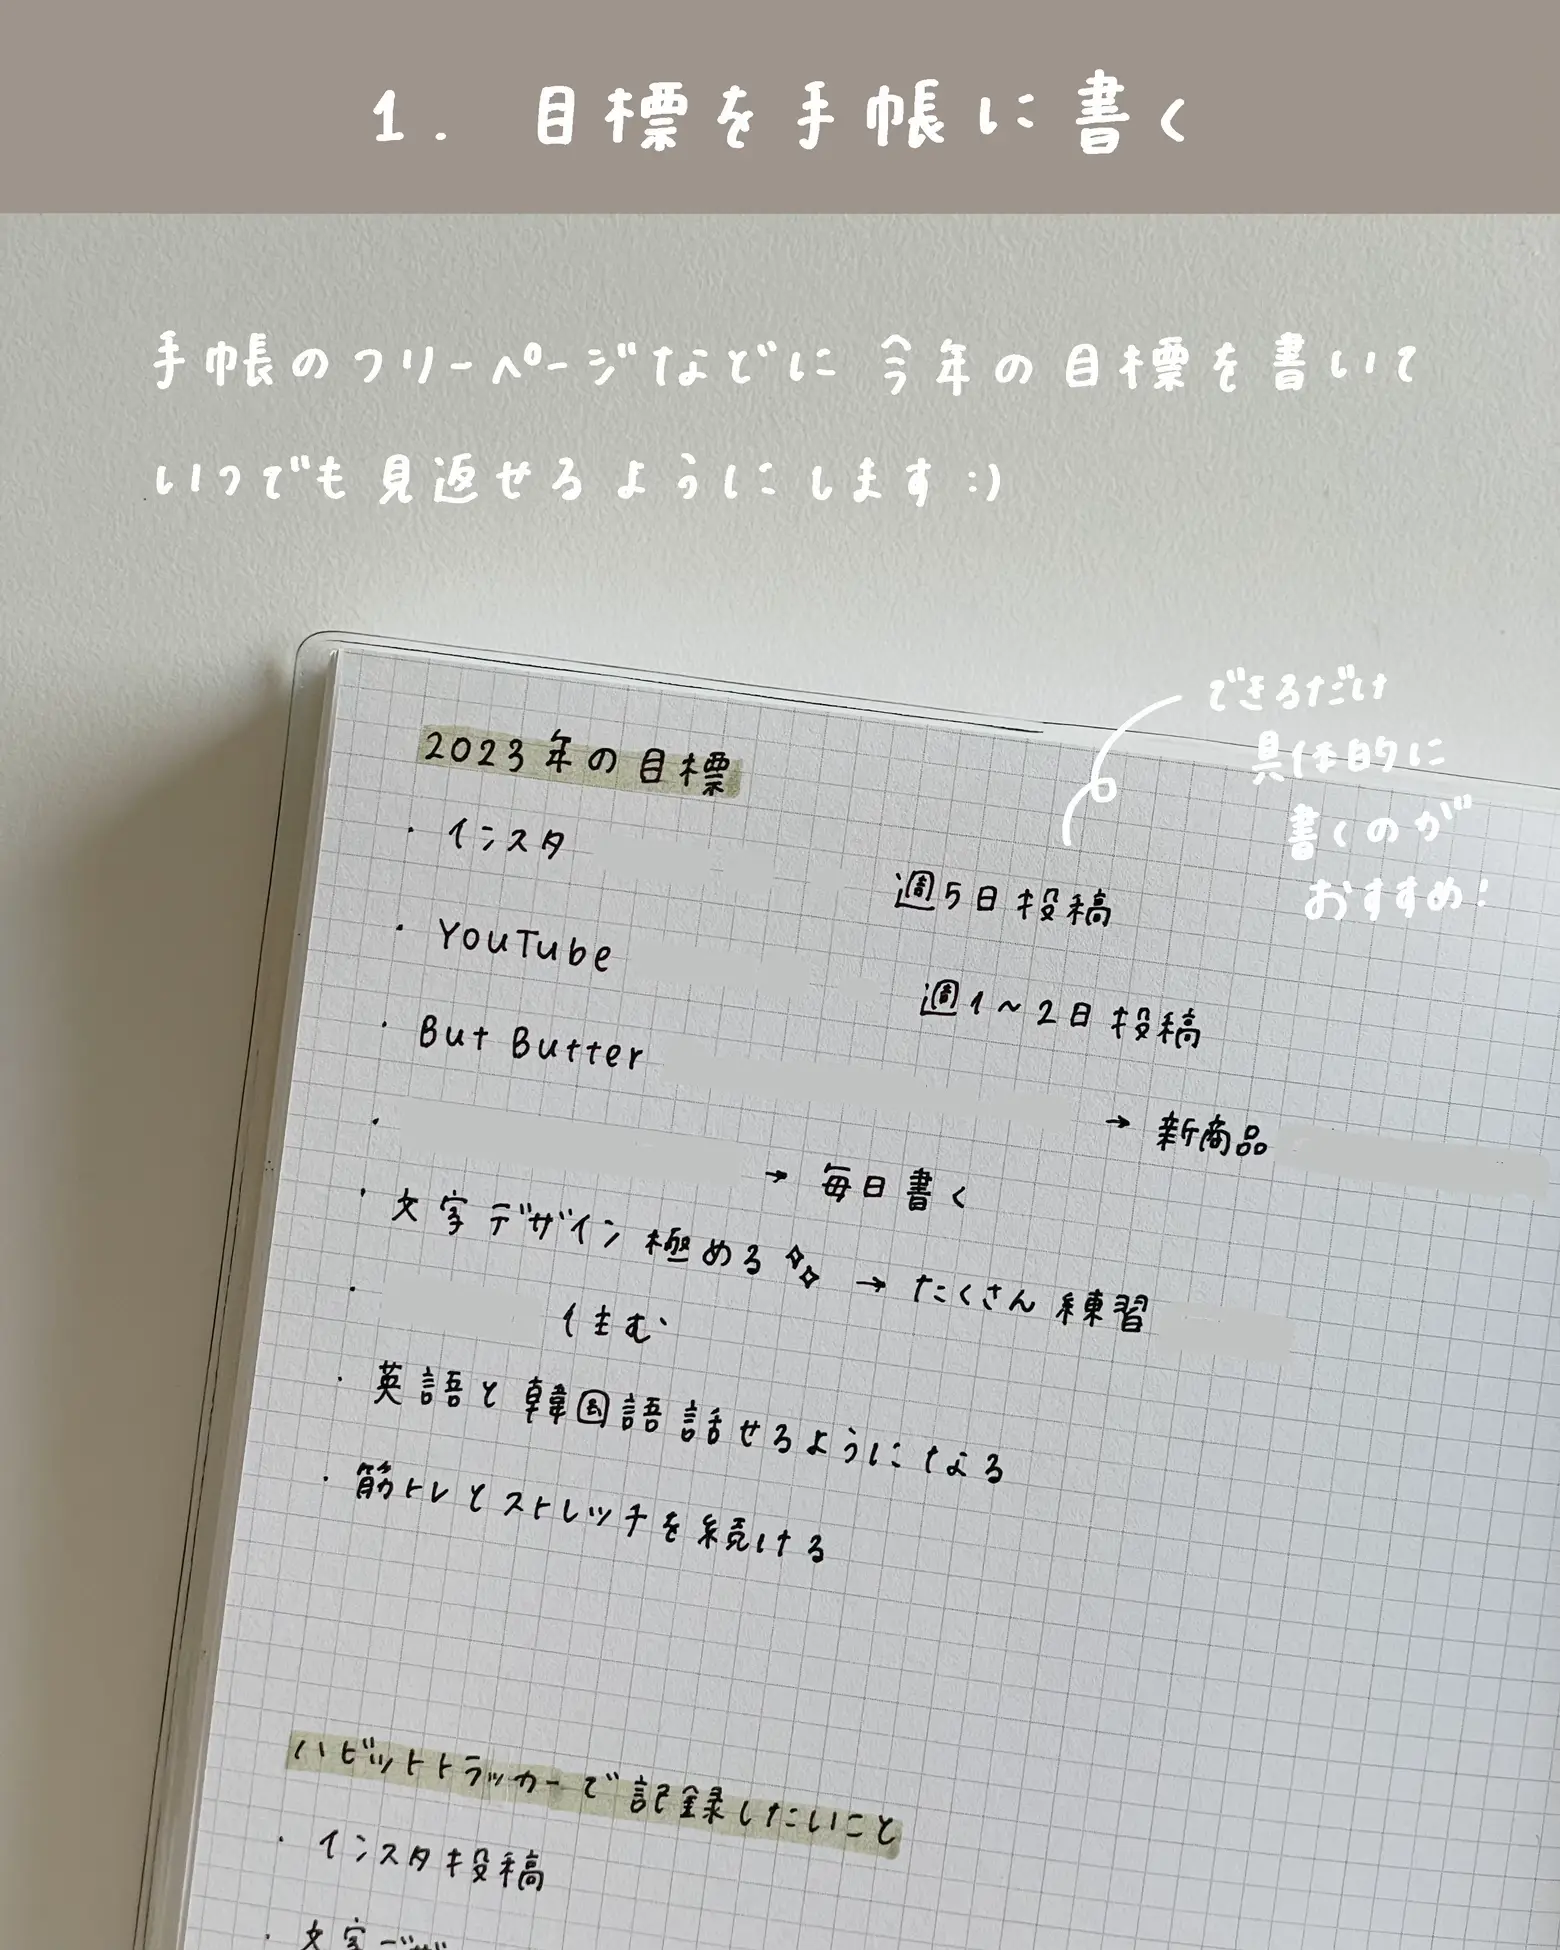 1. 目標を手帳に書く
手帳のフリーページなどに今年の目標を書いて
いつでも見返せるようにします:)
できるだけ
具体的に
書くのが
おすすめ!
2023年の目標
・インスタ 週5日投稿
・YouTube 週1〜2日投稿
・But Butter → 新商品
・ → 毎日書く
・文字デザイン極める → たくさん練習
・ 住む
・英語と韓国語話せるようになる
・筋トレとストレッチを続ける
ハビットトラッカーで記録したいこと
・インスタ投稿
・文字デザ